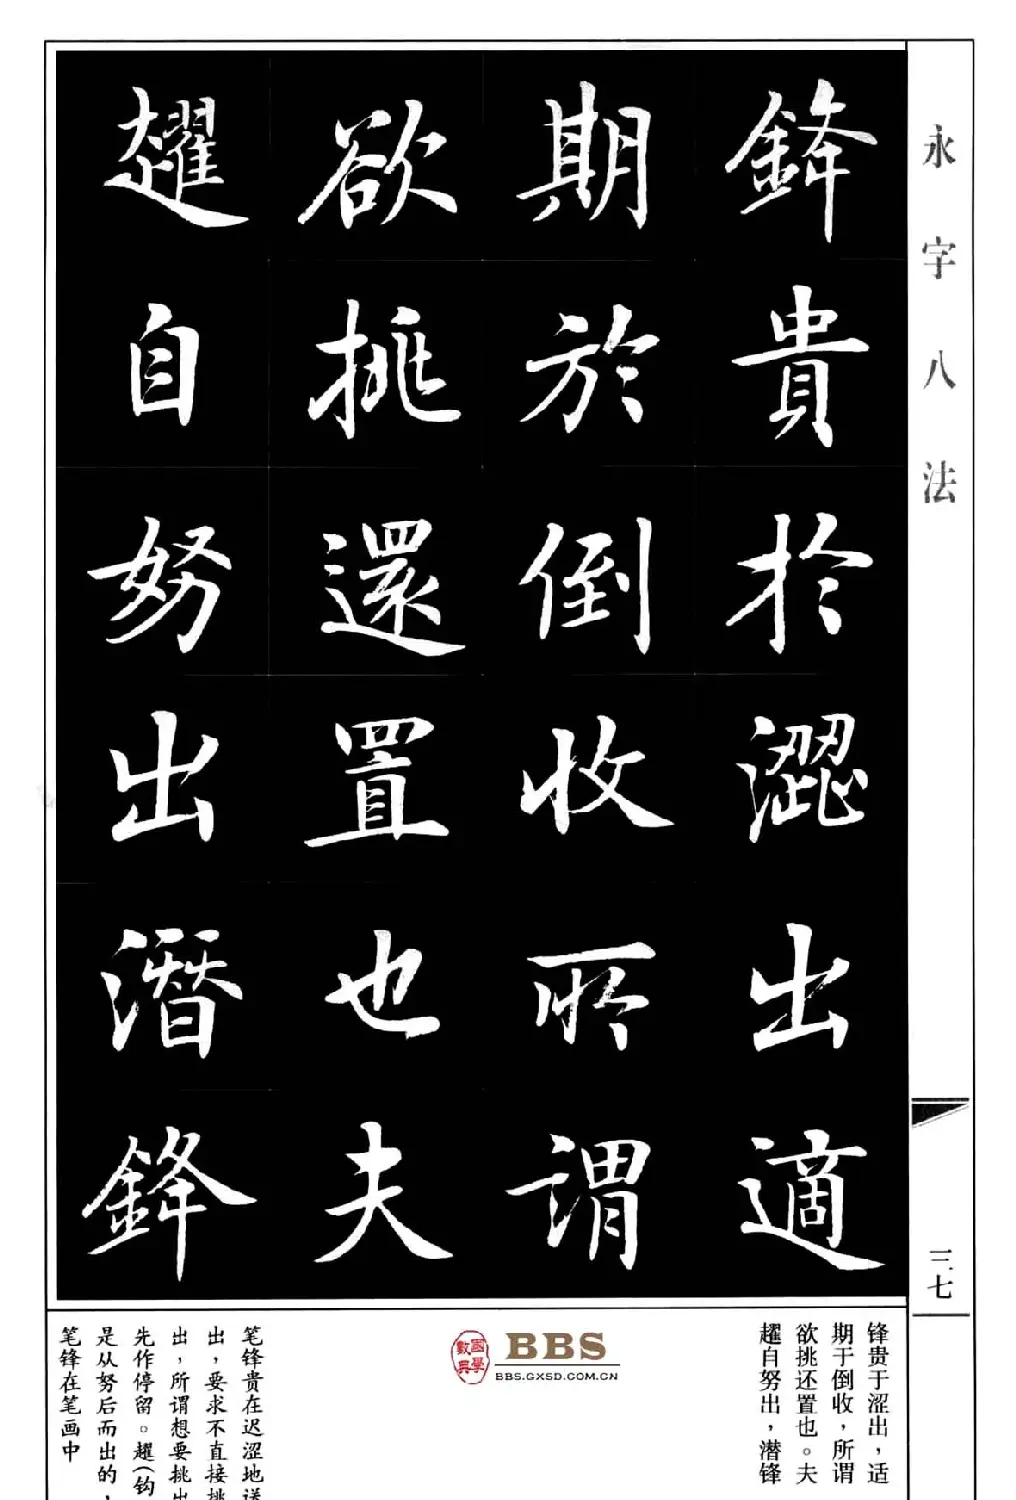 永字八法
三七
鋒貴於澀出適
期於倒收所謂
欲挑還置也夫
趯自努出潛鋒
锋贵于涩出，适
期于倒收，所谓
欲挑还置也。夫
趯自努出，潜锋
國學
數典
BBS
BBS.GXSD.COM.CN
笔锋贵在迟涩地送
出，要求不直接挑
出，所谓想要挑出
先作停留。趯(钩
是从努后而出的，
笔锋在笔画中